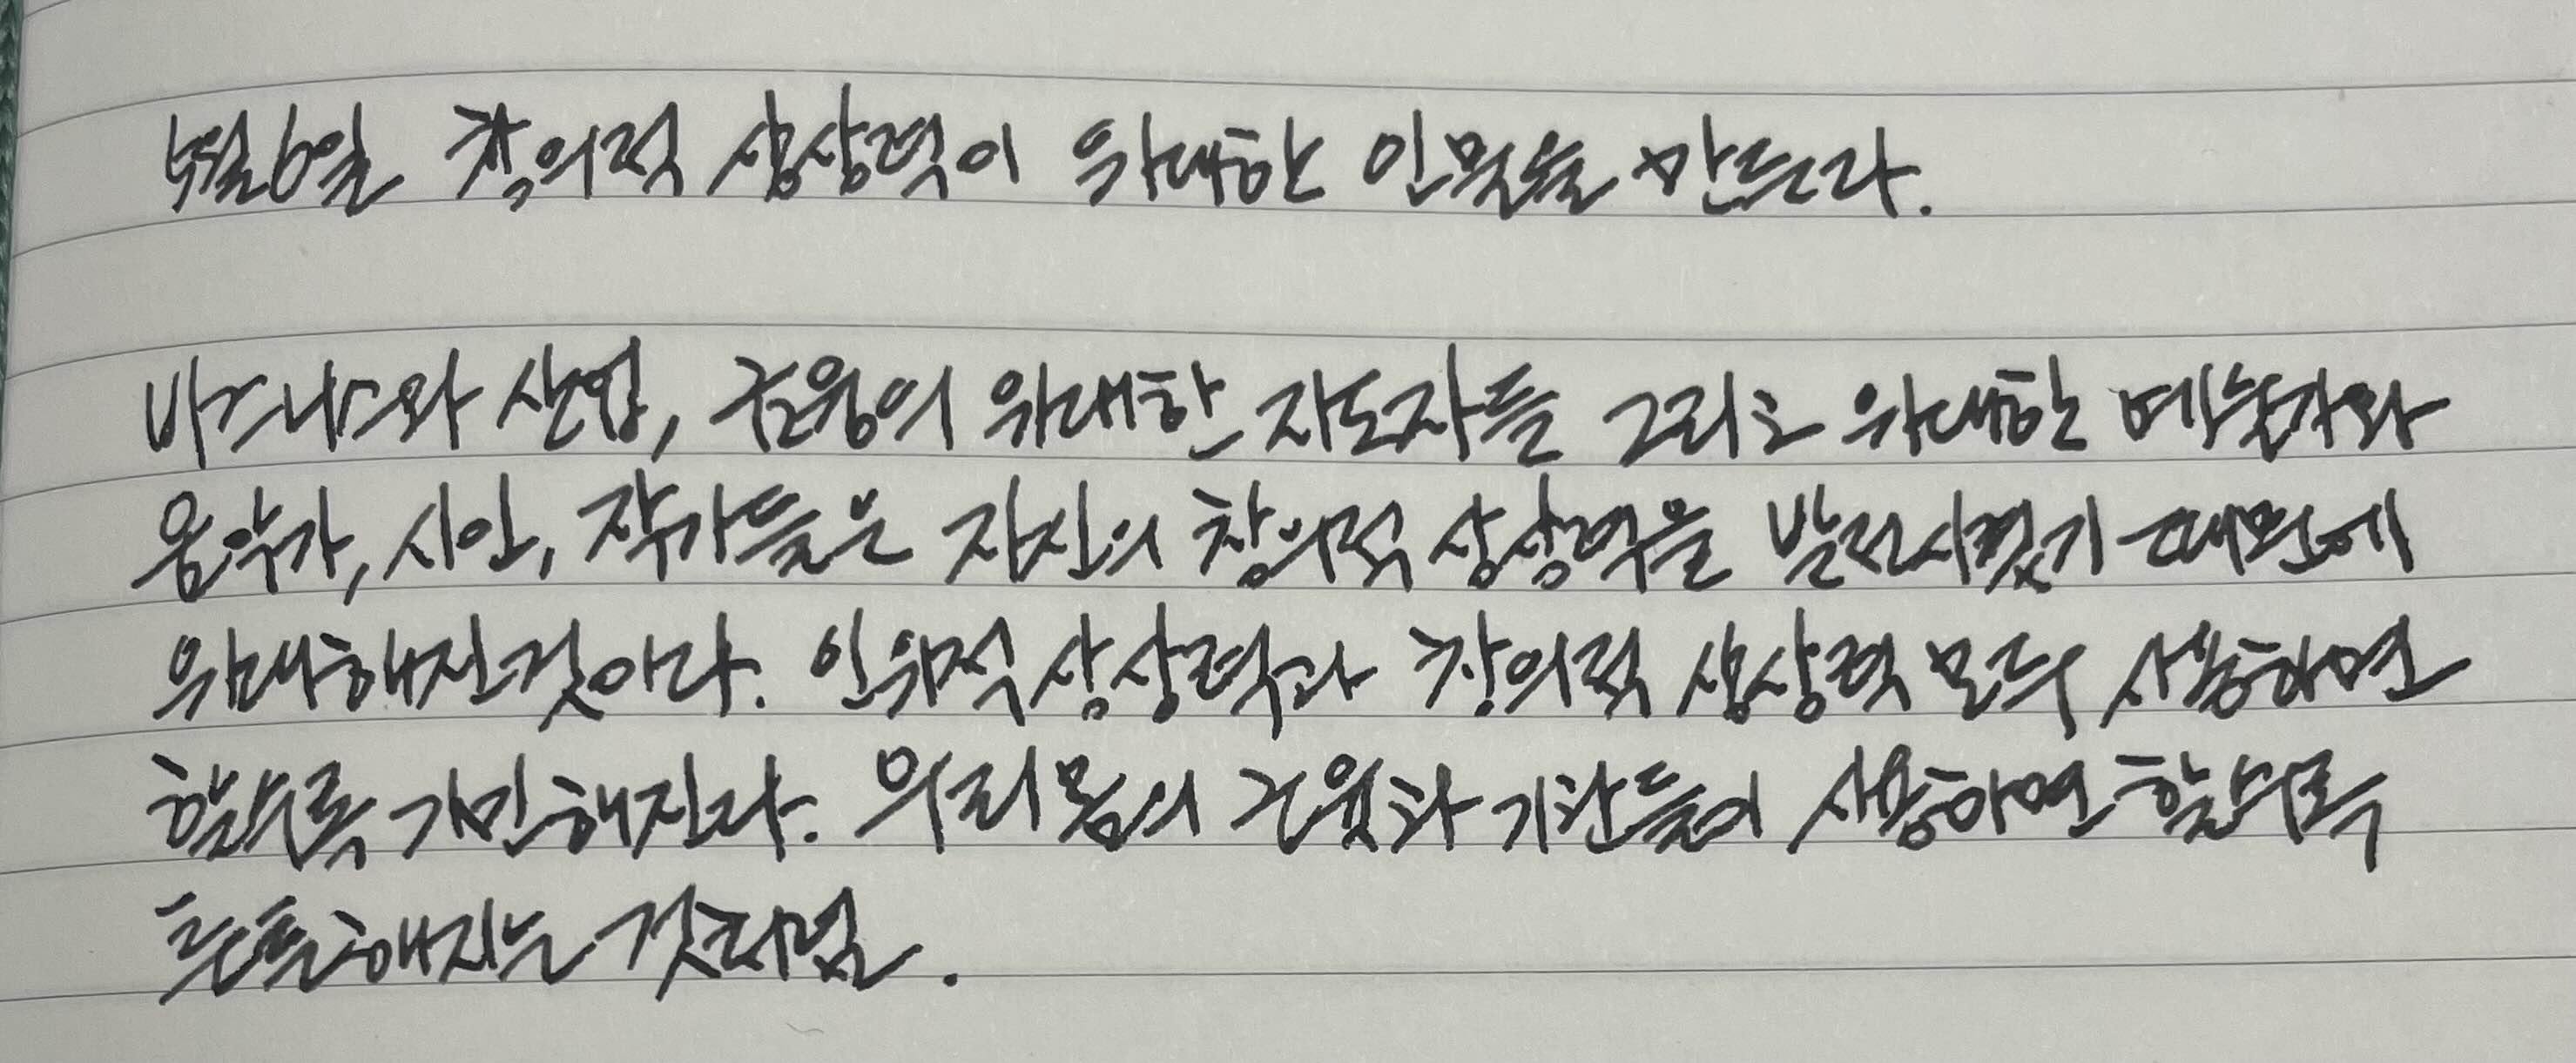 5월6일 창의적 상상력이 위대한 인물을 만든다.
비즈니스와 산업, 금융의 위대한 지도자들 그리고 위대한 예술가와
음악가, 시인, 작가들은 자신의 창의적 상상력을 발전시켰기 때문에
위대해진것이다. 인위적 상상력과 창의적 상상력 모두 사용하면
할수록 기민해진다. 우리 몸의 근육과 기관들이 사용하면 할수록
튼튼해지는 것처럼.